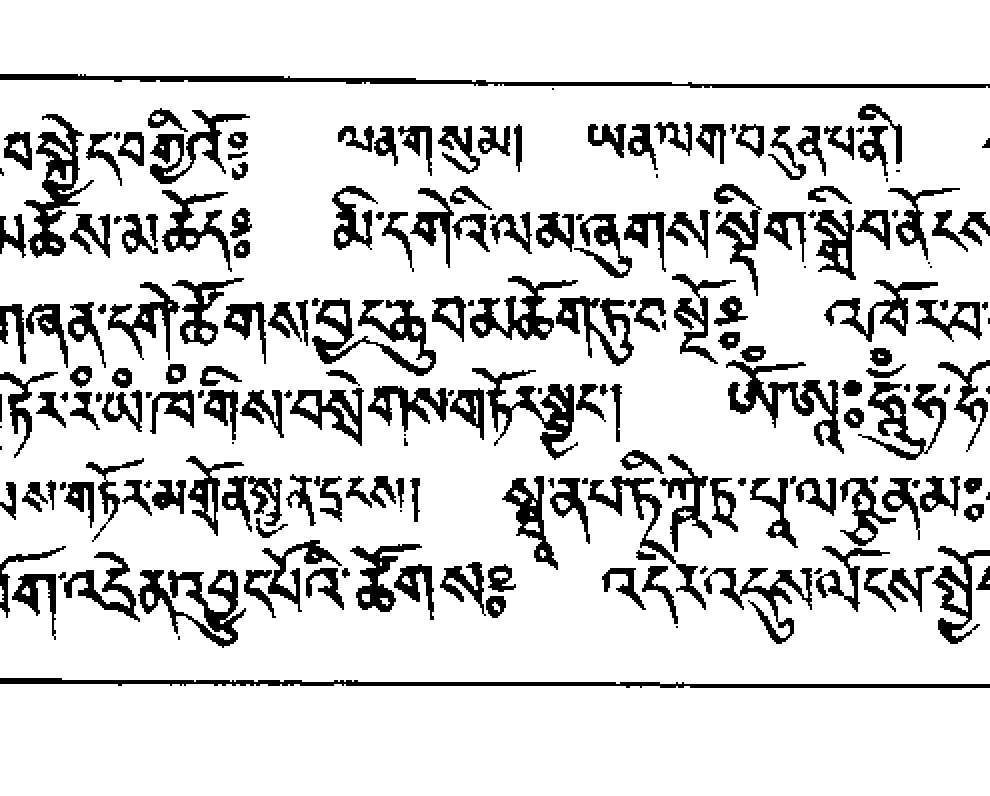 བསྐྱེད་བགྱིའོ༔ ལན་གསུམ། ཡན་ལག་བདུན་པ་ནི།
མཆོས་མ་ཆོད༔ མི་དགེའི་ལམ་ཞུགས་སྡིག་སྒྲིབ་ནོངས
གཞན་དགེ་ཚོགས་བྱང་ཆུབ་མཆོག་ཏུ་བསྔོ༔ འཁོར་བ་
གཏོར་རཾ་ཡཾ་ཁཾ་གིས་བསྲེགས་གཏོར་སྦྱང་། ཨོཾ་ཨཱཿཧཱུྃ་ཧ་ཧོ
པས་གཏོར་མགྲོན་སྤྱན་དྲངས། སྥ་ར་ན་པ་ཏི་ཀྵེ་ཏྲ་པཱ་ལ་
ཤོག་འདྲེན་འབྱུང་པོའི་ཚོགས༔ འདིར་འདུས་ལོངས་སྤྱོ